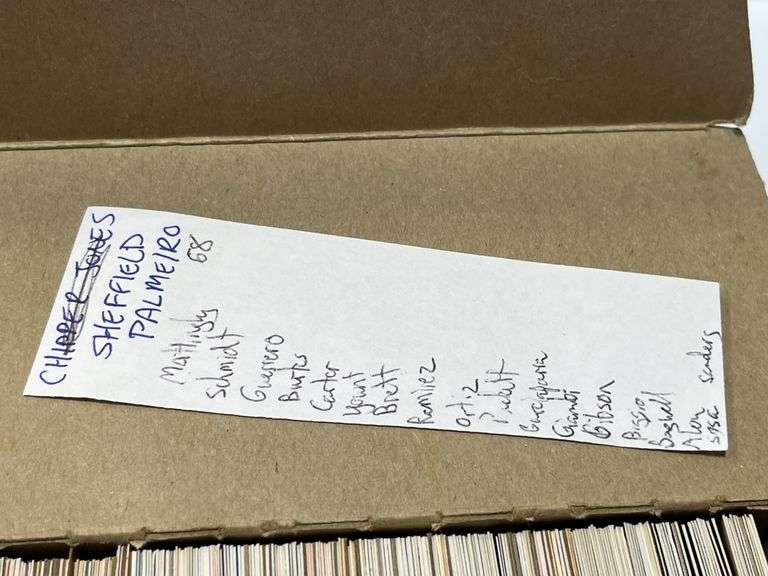 CHIPPER JONES
SHEFFIELD
PALMEIRO
68
Mattingly
Schmidt
Guerrero
Burks
Carter
Yount
Brett
Ramirez
Ortiz
Puckett
Garciaparra
Giambi
Gibson
Biggio
Bagwell
Alou Sanders
Sosa